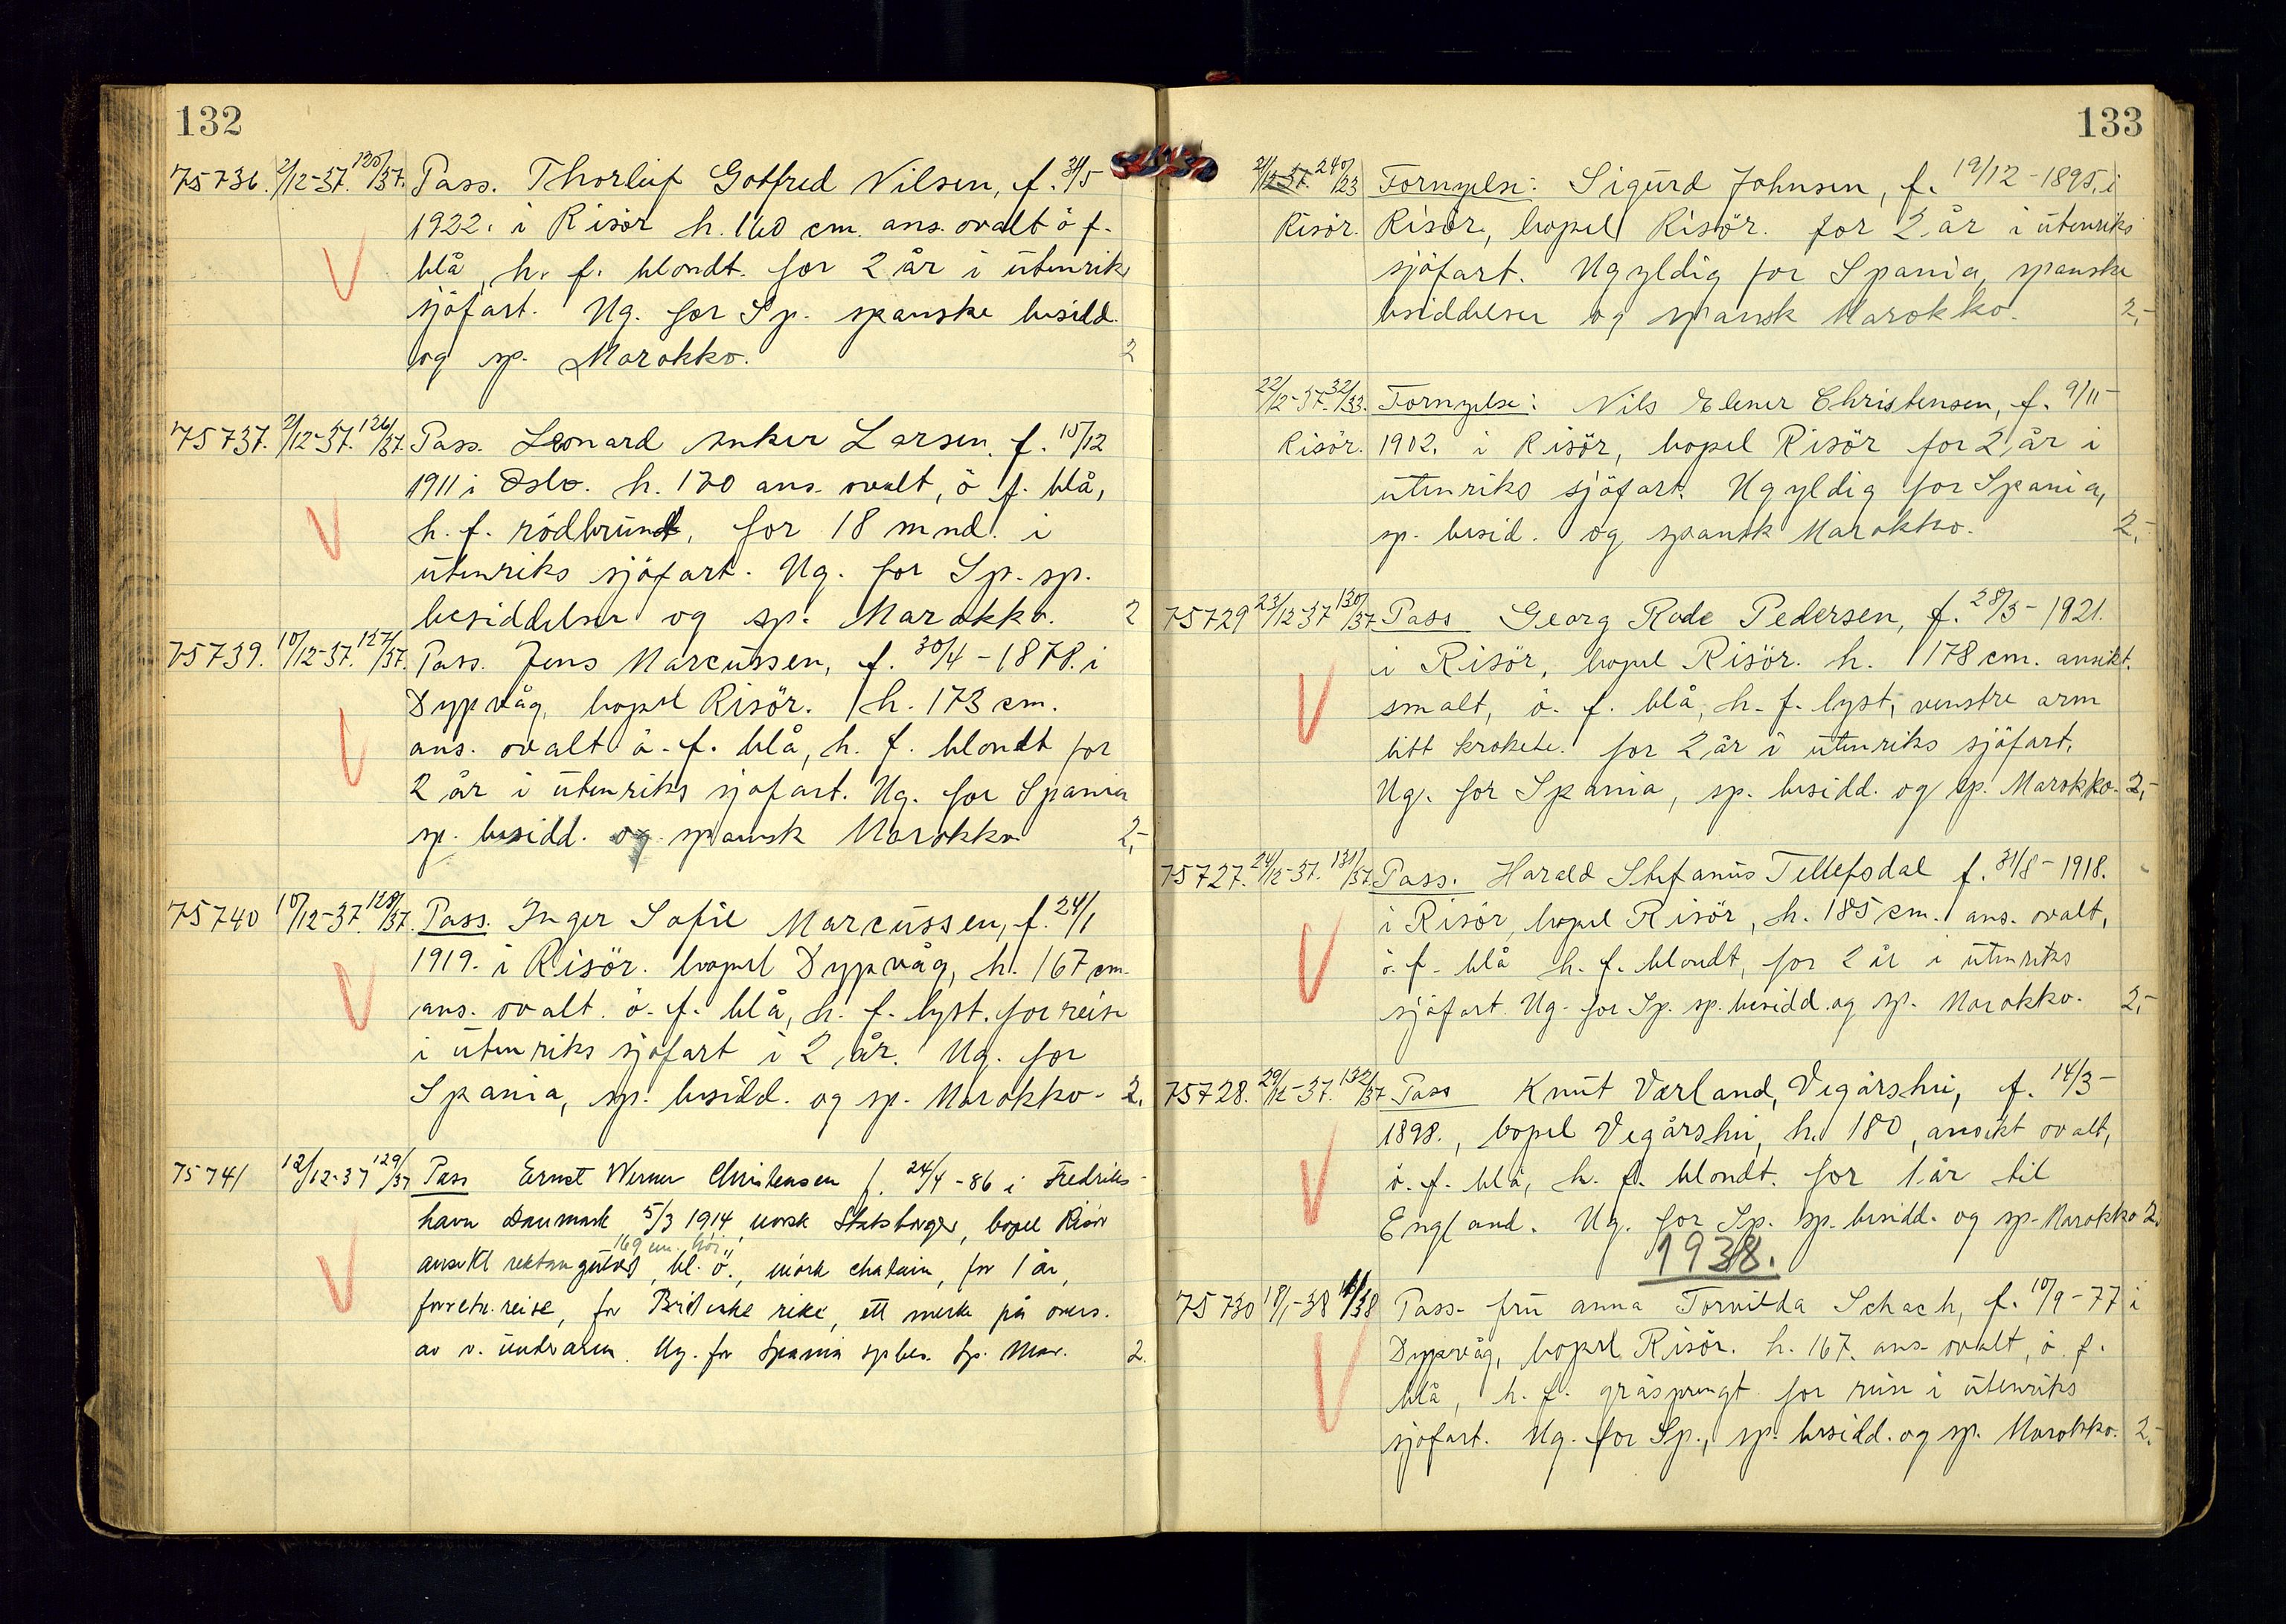 132
75736. 2/12-37. 125/37. Pass. Thorleif Gotfred Nilsen, f. 31/5
1922. i Risör h. 160 cm. ans. ovalt ö f.
blå, h. f. blondt. for 2 år i utenriks
sjöfart. Ug. for Sp. spanske besidd.
og sp. Marokko. 2
75737. 2/12-37. 126/37. Pass. Leonard Anker Larsen, f. 15/12
1911 i Oslo. h. 170 ans. ovalt, ö f. blå,
h. f. rödbrunt, for 18 mnd. i
utenriks sjöfart. Ug. for Sp. sp.
besiddelser og sp. Marokko. 2
75739. 10/12-37. 127/37. Pass. Jens Marcussen, f. 30/4-1878. i
Dypvåg, bopel Risör. h. 173 cm.
ans. ovalt ö. f. blå, h. f. blondt for
2 år i utenriks sjöfart. Ug. for Spania
sp. besidd. og spansk Marokko 2,-
75740 10/12-37. 128/37. Pass. Inger Sofie Marcussen, f. 24/1
1919. i Risör. bopel Dypvåg, h. 167 cm.
ans. ovalt. ö. f. blå, h. f. lyst. for reise
i utenriks sjöfart i 2 år. Ug. for
Spania, sp. besidd. og sp. Marokko. 2.
75741 12/12-37 129/37 Pass Ernst Werner Christensen f. 24/4-86 i Fredriks-
havn Danmark 5/3 1914 norsk Statsborger, bopel Risör
169 cm. höi
ansikt rektangulært, bl. ö., mörk chatain, for 1 år,
forretn.reise, for Britiske rike, ett merke på overs.
av v. underarm. Ug. for Spania sp bes. Sp. Mar. 2.
133
21/12-37. 240/23 Fornyelse: Sigurd Johnsen, f. 19/12-1895. i
Risör. Risör, bopel Risör. for 2 år i utenriks
sjöfart. Ugyldig for Spania, spanske
besiddelser og spansk Marokko. 2,-
22/12-37. 32/33. Fornyelse: Nils Elener Christensen, f. 9/11-
Risör. 1902. i Risör, bopel Risör for 2 år i
utenriks sjöfart. Ugyldig for Spania,
sp. besid. og spansk Marokko. 2,-
75729 23/12-37 130/37 Pass Georg Rode Pedersen, f. 28/3-1921.
i Risör, bopel Risör. h. 178 cm. ansikt.
smalt, ö. f. blå, h. f. lyst, venstre arm
litt krokete. for 2 år i utenriks sjöfart.
Ug. for Spania, sp. besidd. og sp. Marokko. 2,-
75727. 24/12-37. 131/37. Pass. Harald Stefanus Tellefsdal f. 31/8-1918.
i Risör, bopel Risör, h. 185 cm. ans. ovalt,
ö. f. blå h. f. blondt, for 2 år i utenriks
sjöfart. Ug. for Sp. sp. besidd. og sp. Marokko. 2,-
75728. 29/12-37. 132/37 Pass Knut Varland, Vegårshei, f. 14/3-
1898., bopel Vegårshei, h. 180, ansikt ovalt,
ö. f. blå, h. f. blondt. for 1 år til
England. Ug. for Sp. sp. besidd. og sp. Marokko 2.
1938.
75730 18/1-38 1/38 Pass. fru Anna Torvilda Schach, f. 10/9-77 i
Dypvåg, bopel Risör. h. 167. ans. ovalt, ö. f.
blå, h. f. gråsprengt for reise i utenriks
sjöfart. Ug. for Sp., sp. besidd. og sp. Marokko. 2.-